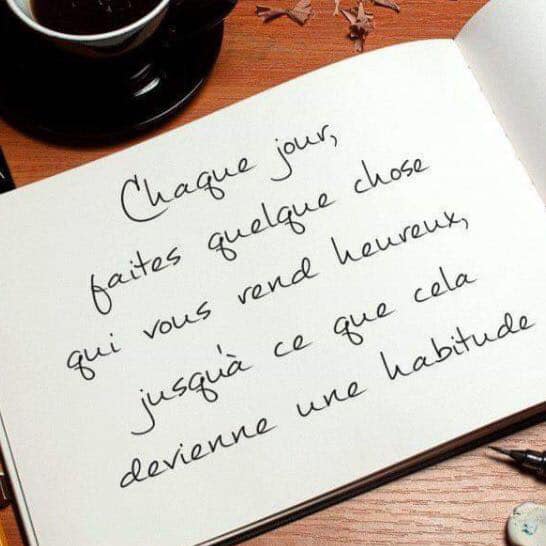 Chaque jour,
faites quelque chose
qui vous rend heureux,
jusqu'à ce que cela
devienne une habitude